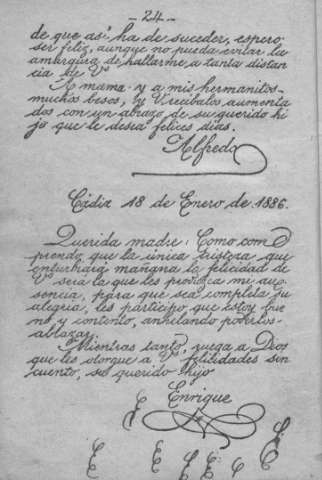 - 24 -
de que así ha de suceder, espero
ser feliz, aunque no pueda evitar la
amargura de hallarme a tanta distan
cia de V.
A mamá y a mis hermanitos
muchos besos, y V. recíbalos aumenta
dos con un abrazo de su querido hi
jo que le desea felices días.
Alfredo
Cádiz 18 de Enero de 1886.
Querida madre: Como com
prendo que la única tristeza que
enturbiará mañana la felicidad de
V. será la que les provoca mi au
sencia, para que sea completa su
alegría, les participo que estoy bue
no y contento, anhelando poderlos
abrazar.
Mientras tanto, ruega a Dios
que les otorgue a V. felicidades sin
cuento, su querido hijo
Enrique